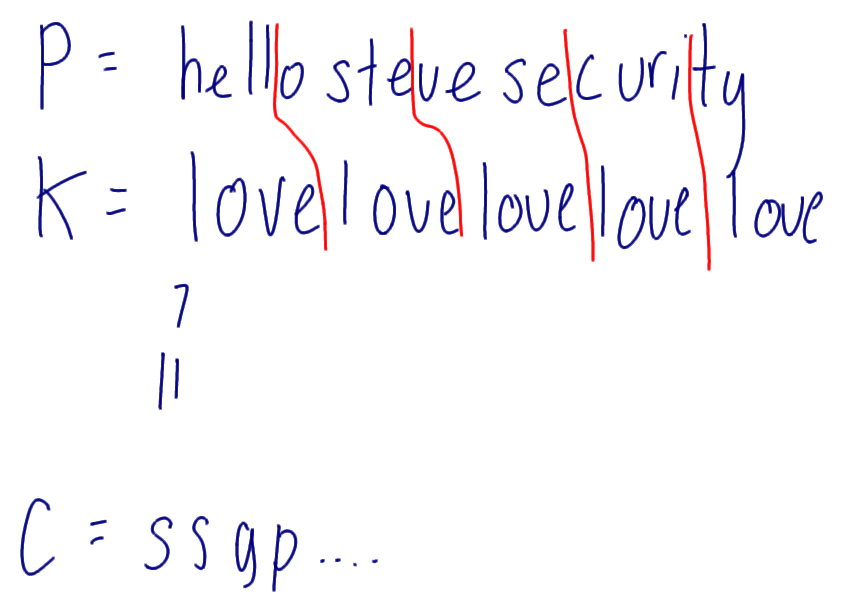 P = hello steve security
K = love love love love love
7
11
C = ssgp....